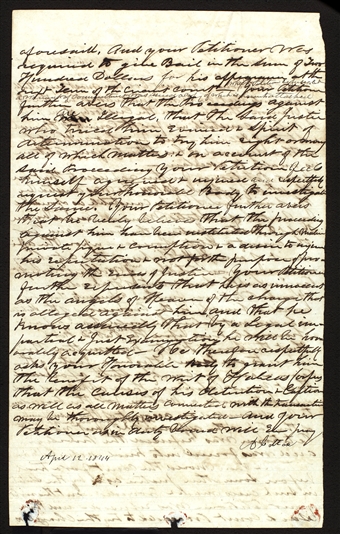 aforesaid, And your Petitioner was
required to give Bail in the sum of Two
Hundred Dollars for his appearance at the
first Term of the circuit court Your Petitioner
further avers that the Proceedings against
him were Illegal, that the said Justice
who tried him evinced a spirit of
determination to try him right or wrong
all of which matters on account of the
said Proceedings your Petitioner
himself aggrieved
your Honorable Body to investigate
the same Your Petitioner further avers
that he verily believes that the proceedings
against him have been instituted through
corruption & a desire to injure
his reputation & not for the purpose of pro-
moting the ends of Justice Your Petitioner
further represents that he is as innocent
as the angels of Heaven of the charge that
is alleged against him and that he
knows assuredly that by a legal im-
partial & Just he would be honor-
ably acquitted He therefore respectfully
asks your Honorable Body to grant him
the benefit of the writ of Habeas Corpus
that the causes of his detention & Caption
as well as all matters connected with the transaction
may be thoroughly investigated And your
Petitioner as in duty bound will ever pray
April 12. 1844